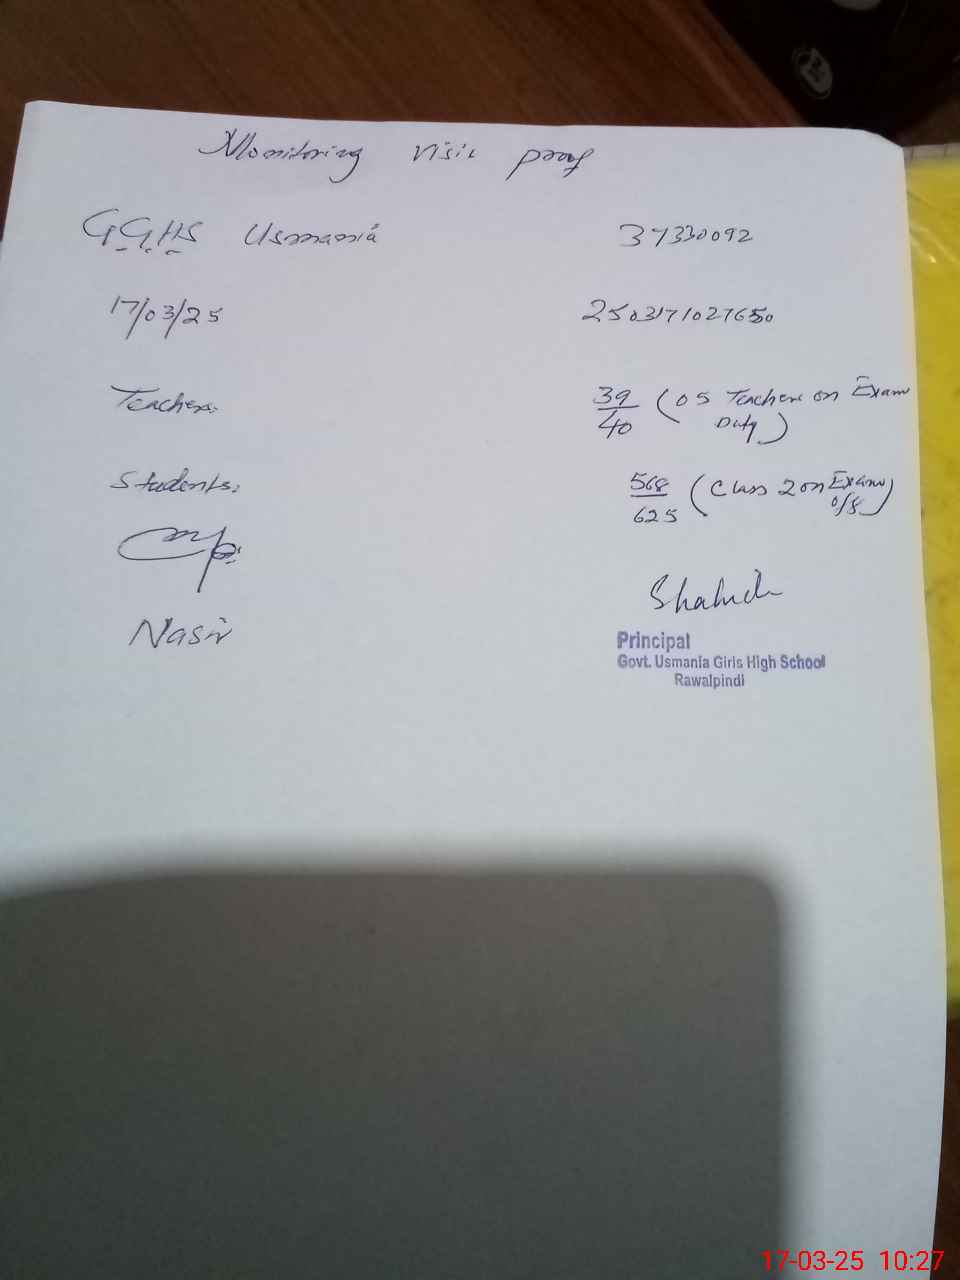 Monitoring visit proof
G.G.H.S Usmania 37330092
17/03/25 2503171027650
Teachers: 39/40 (05 Teachers on Exam Duty)
Students: 568/625 (Class 2 on Exam o/s)
Nasir
Shahida
Principal
Govt. Usmania Girls High School
Rawalpindi
17-03-25 10:27